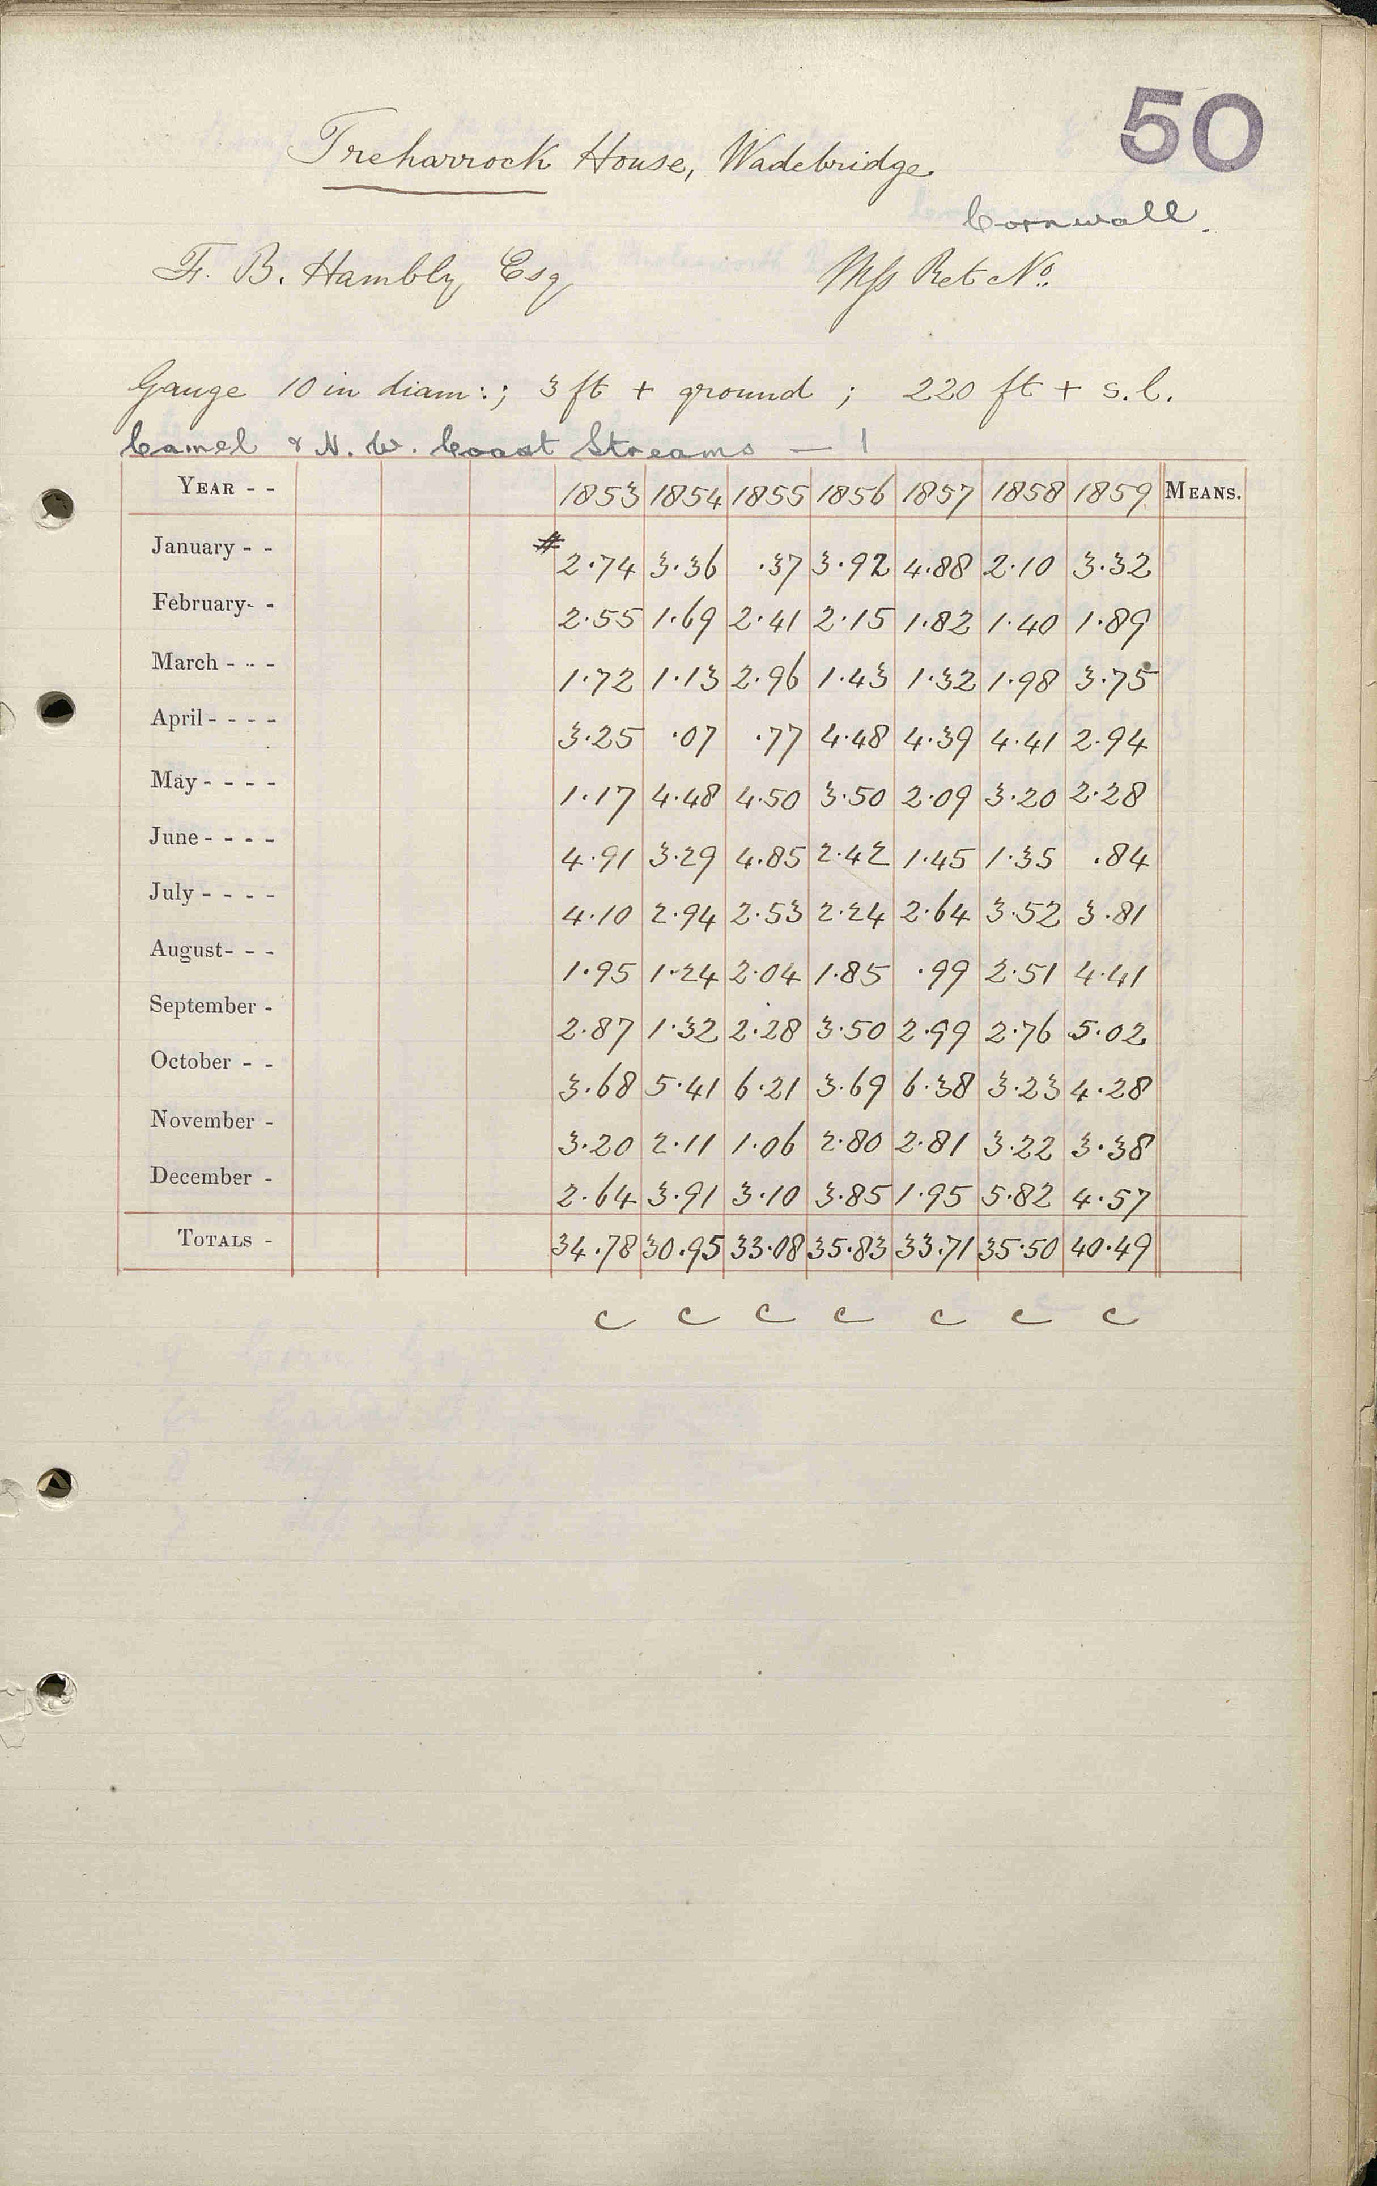 50
Treharrock House, Wadebridge.
Cornwall.
F. B. Hambly Esq Mss Ret No.
Gauge 10 in diam:; 3 ft + ground; 220 ft + s.l.
Camel & N. W. Coast Streams — 1
YEAR - - 1853 1854 1855 1856 1857 1858 1859 MEANS.
January - - # 2.74 3.36 .37 3.92 4.88 2.10 3.32
February- - 2.55 1.69 2.41 2.15 1.82 1.40 1.89
March - - - 1.72 1.13 2.96 1.43 1.32 1.98 3.75
April - - - - 3.25 .07 .77 4.48 4.39 4.41 2.94
May - - - - 1.17 4.48 4.50 3.50 2.09 3.20 2.28
June - - - - 4.91 3.29 4.85 2.42 1.45 1.35 .84
July - - - - 4.10 2.94 2.53 2.24 2.64 3.52 3.81
August- - - 1.95 1.24 2.04 1.85 .99 2.51 4.41
September - 2.87 1.32 2.28 3.50 2.99 2.76 5.02
October - - 3.68 5.41 6.21 3.69 6.38 3.23 4.28
November - 3.20 2.11 1.06 2.80 2.81 3.22 3.38
December - 2.64 3.91 3.10 3.85 1.95 5.82 4.57
TOTALS - 34.78 30.95 33.08 35.83 33.71 35.50 40.49
c c c c c c c